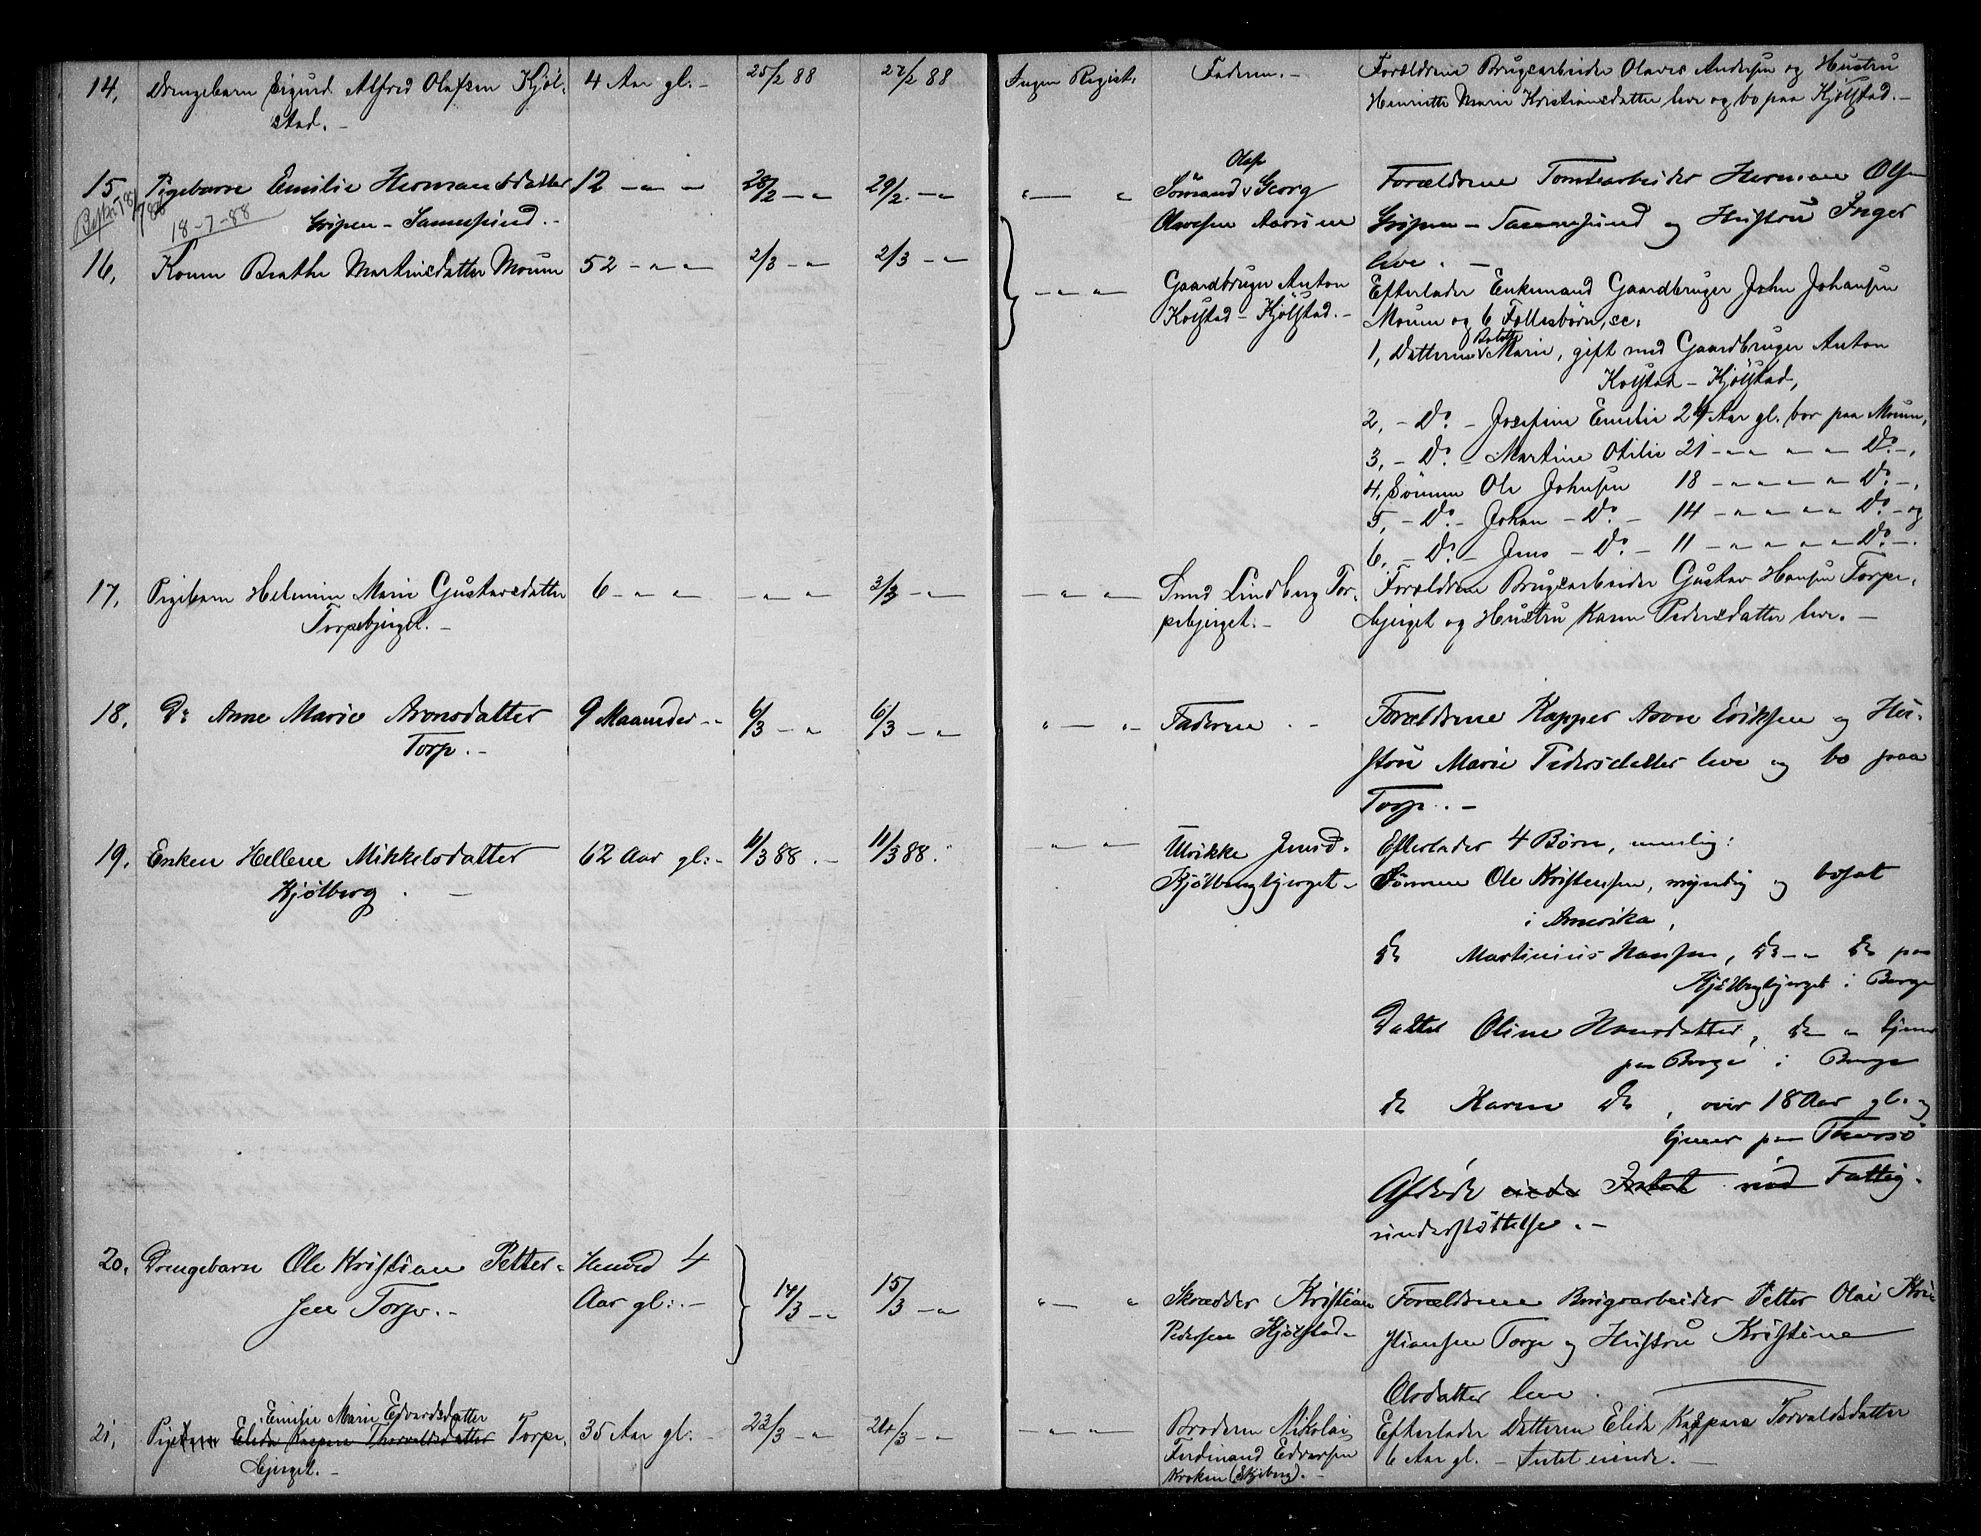 14, Drengebarn Sigurd Alfred Olafsen Kjöl- 4 Aar gl. - 25/2 88 27/2 88 Ingen Regist. Faderen. - Forældrene Brugsarbeider Olaves Andersen og Hustru
stad. - Henriette Marie Kristiansdatter leve og bo paa Kjølstad. -
15, Pigebarn Emilie Hermansdatter 12 - " - 28/2 - " 29/2 - " " - " Sømand Olaf Georg Forældrene Tomtearbeider Herman Ols
18-7-88 Gripen - Sannesund. - Olavesen Aarum Gripen - Sannesund og Hustru Inger
leve. -
16, Konen Berthe Martinsdatter Moum 52 - " - 2/3 - " 2/3 - " - " - " Gaardbruger Anton Efterlader Enkemand Gaardbruger John Johansen
Kolstad - Kjølstad. - Moum og 6 Fællesbörn, sc:
1, Datteren Marie, gift med Gaardbruger Anton
Kolstad - Kjølstad,
2, - Do - Josefine Emilie 24 Aar gl. bor paa Moum,
3, - Do - Martine Otilie 21 - " - " - " - Do -,
4, Sönnen Ole Johnsen 18 - " - " - " - Do -,
5, - Do - Johan - Do - 14 - " - " - " - Do - og
6, - Do - Jens - Do - 11 - " - " - " - Do -.
17, Pigebarn Helmine Marie Gustavsdatter 6 - " - " - " - " 3/3 - " - " - " Smed Lindberg Tor- Forældrene Brugsarbeider Gustav Hansen Torpe-
Torpebjerget. - pebjerget. - bjerget og Hustru Karen Pedersdatter leve. -
18, Do Anne Marie Aronsdatter 9 Maaneder - 6/3 - " 6/3 - " " - " - Faderen. - Forældrene Kapper Aron Eriksen og Hu-
Torp. - stru Marie Pedersdatter leve og bo paa
Torp. -
19, Enken Hellene Mikkelsdatter 62 Aar gl: - 11/3 88. - 11/3 88. - " - " Ulrikke Jensd. Efterlader 4 Børn, nemlig:
Kjølberg. - Kjølbergbjerget - Sønnen Ole Kristensen, myndig og bosat
i Amerika,
do Martinius Hansen, do - " do paa
Kjølbergbjerget i Borge
Datter Oline Hansdatter, do " tjener
paa Borge i Borge
do Karen do, over 18 Aar gl. og
tjener paa Thorsø
Afdøde eiede Intet nød Fattig-
understøttelse. -
20, Drengebarn Ole Kristian Petter- Henved 4 14/3 - " 15/3 - " " - " Skrædder Kristian Forældrene Brugsarbeider Petter Olai Kri-
sen Torp. - Aar gl:. - Pedersen Kjølstad - stiansen Torp og Hustru Kristine
Olsdatter leve.
21, Pigen Emilie Marie Edvardsdatter Elida Kaspara Thorvaldsdatter Torpe- 35 Aar gl. - 23/3 - " 24/3 - " - " - " Broderen Nikolai Efterlader Datteren Elida Kaspara Torvaldsdatter
bjerget. - Ferdinand Edvardsen 6 Aar gl. - Intet eiende. -
Kroken (Skjeberg). -